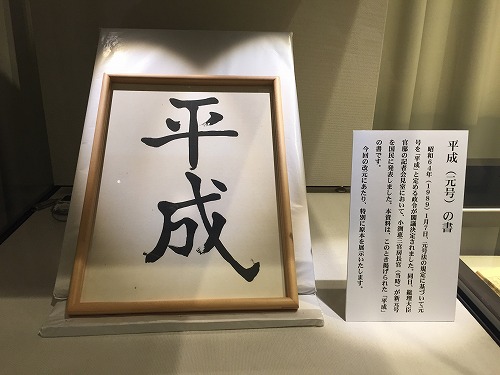 平成
平成（元号）の書
昭和64年（1989）1月7日、元号法の規定に基づいて元
号を「平成」と定める政令が閣議決定されました。同日、総理大臣
官邸の記者会見室において、小渕恵三官房長官（当時）が新元号
を国民に発表しました。本資料は、このとき掲げられた「平成」
の書です。
今回の改元にあたり、特別に原本を展示いたします。